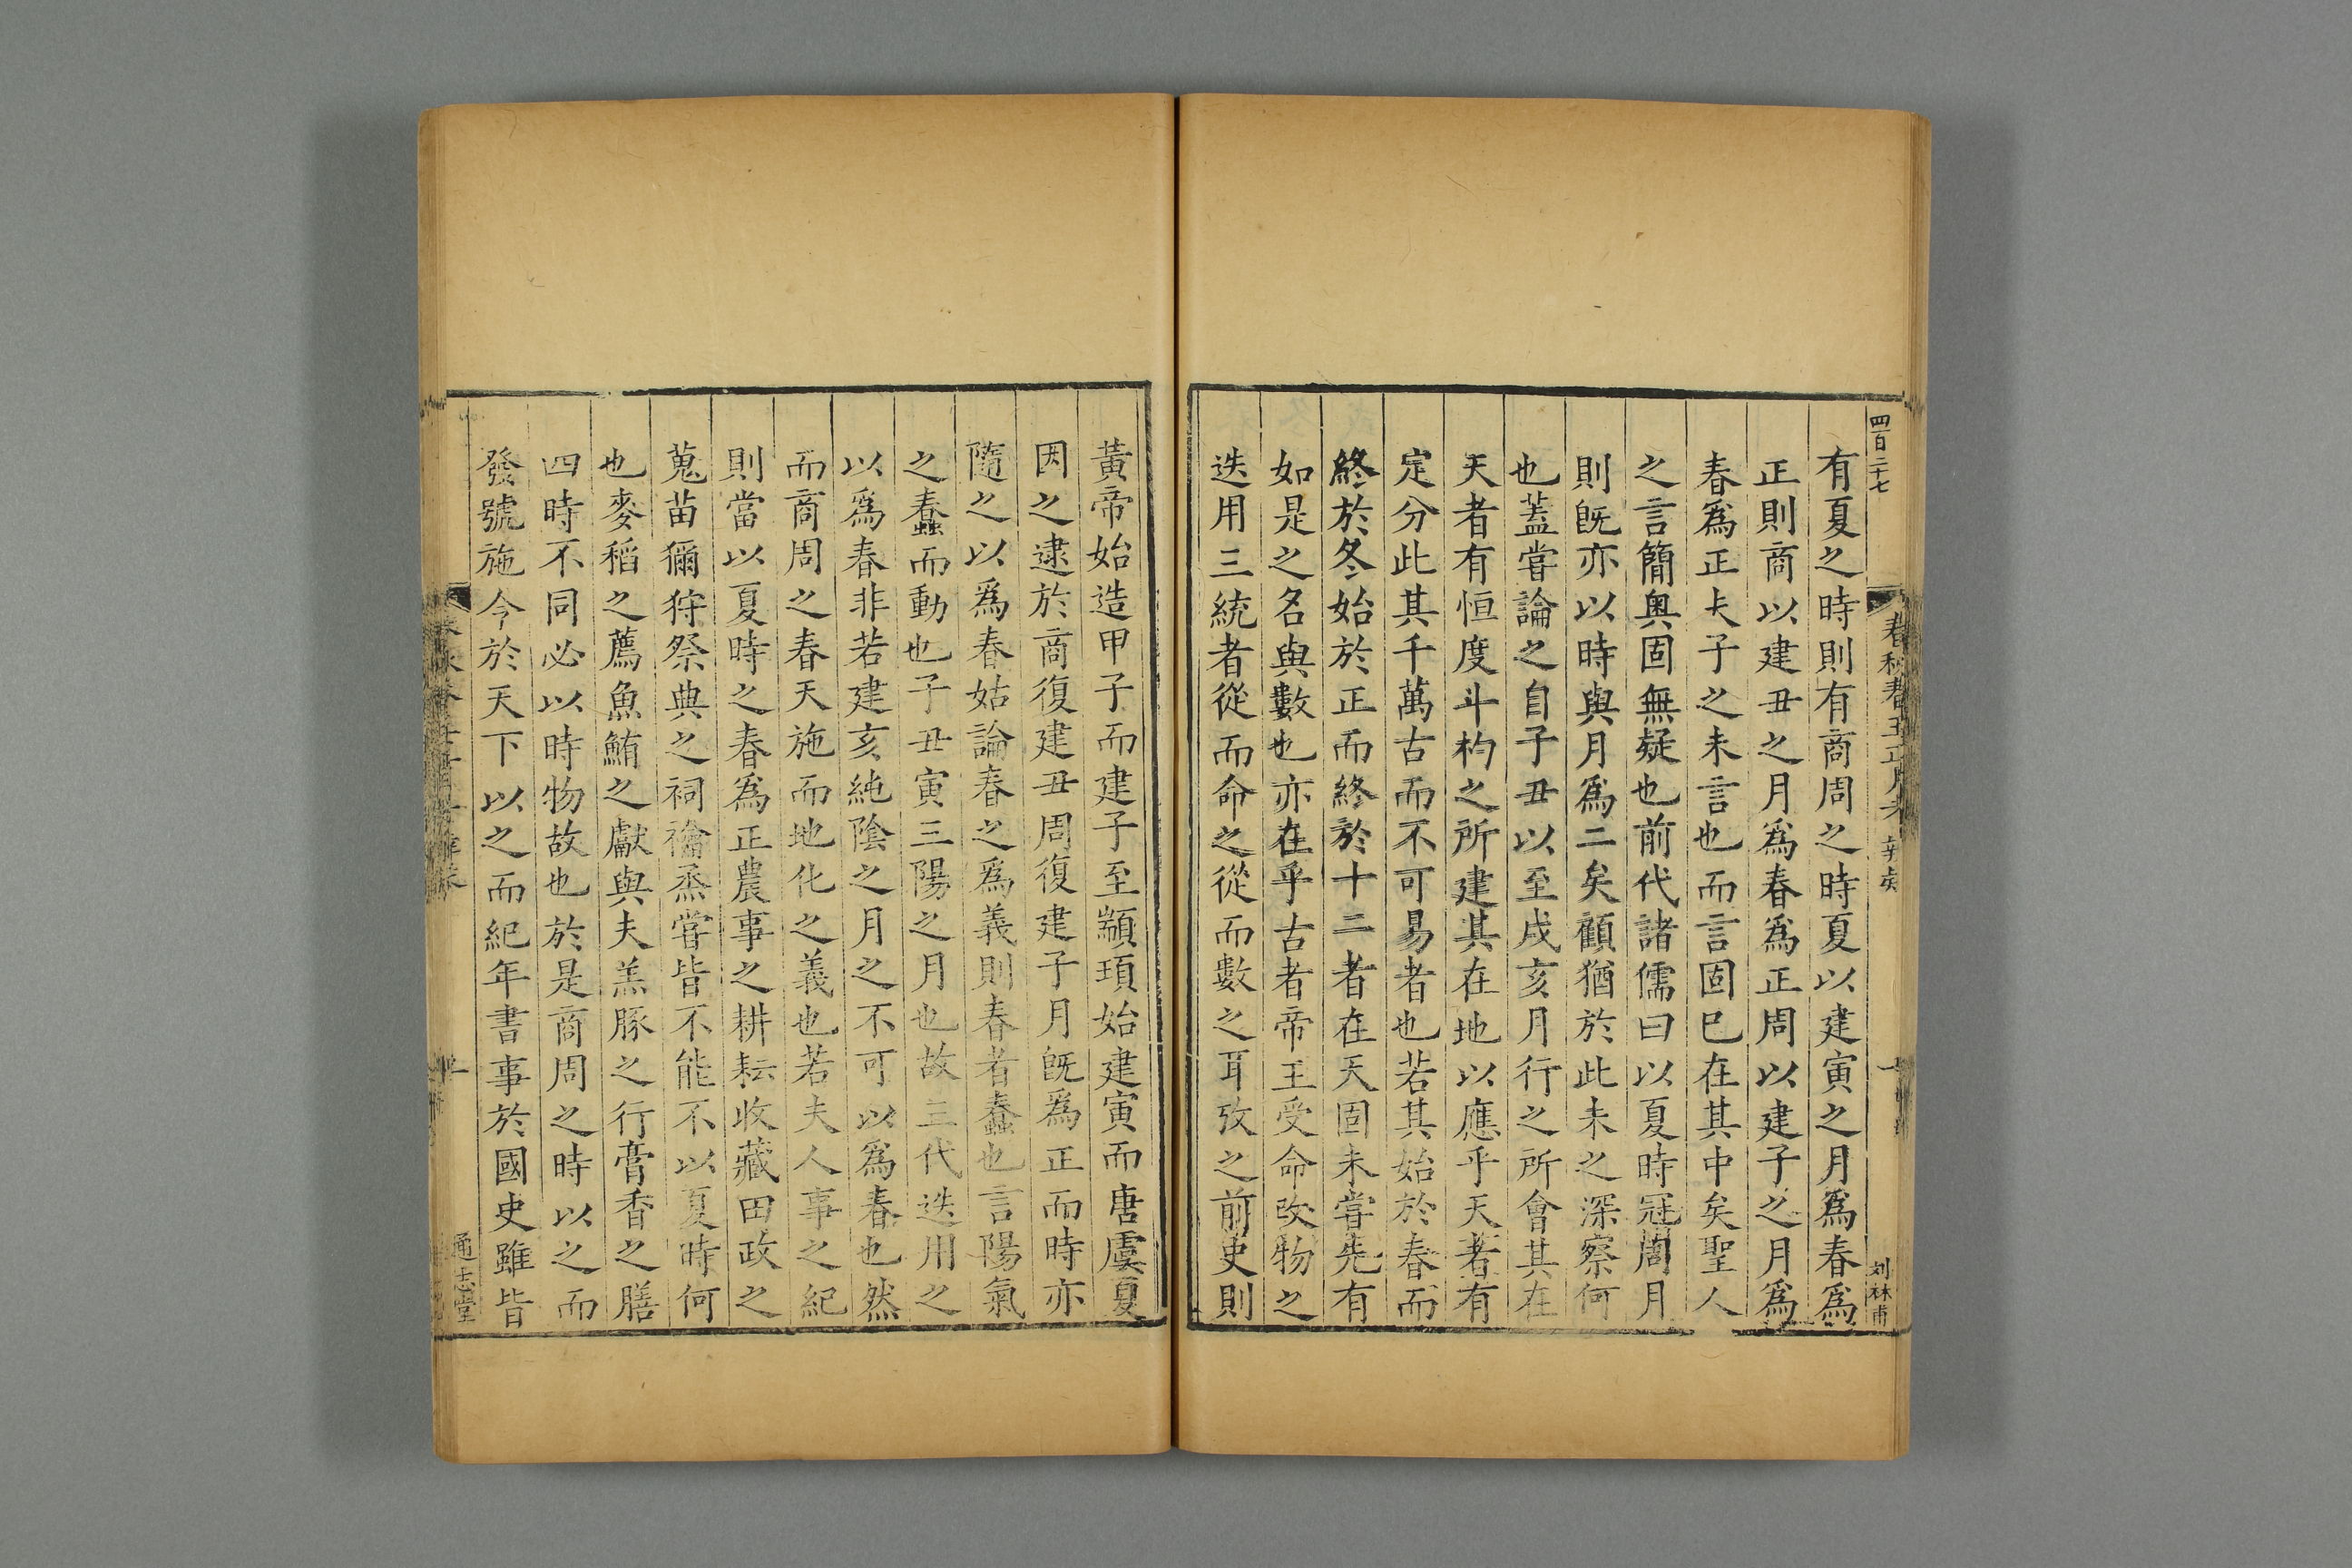 四百二十七
春秋春王正月考 辛奌
一
刘林甫
有夏之時則有商周之時夏以建寅之月爲春爲
正則商以建丑之月爲春爲正周以建子之月爲
春爲正夫子之未言也而言固巳在其中矣聖人
之言簡奥固無疑也前代諸儒曰以夏時冠周月
則旣亦以時與月爲二矣顧猶於此未之深察何
也蓋甞論之自子丑以至戌亥月行之所會其在
天者有恒度斗杓之所建其在地以應乎天者有
定分此其千萬古而不可易者也若其始於春而
終於冬始於正而終於十二者在天固未甞先有
如是之名與數也亦在乎古者帝王受命改物之
迭用三統者從而命之從而數之耳攷之前史則
黃帝始造甲子而建子至顓頊始建寅而唐虞夏
因之逮於商復建丑周復建子月旣爲正而時亦
隨之以爲春姑論春之爲義則春者蠢也言陽氣
之蠢而動也子丑寅三陽之月也故三代迭用之
以爲春非若建亥純陰之月之不可以爲春也然
而商周之春天施而地化之義也若夫人事之紀
則當以夏時之春爲正農事之耕耘收藏田政之
蒐苗獮狩祭典之祠禴烝甞皆不能不以夏時何
也麥稻之薦魚鮪之獻與夫羔豚之行膏香之膳
四時不同必以時物故也於是商周之時以之而
發號施令於天下以之而紀年書事於國史雖皆
通志堂